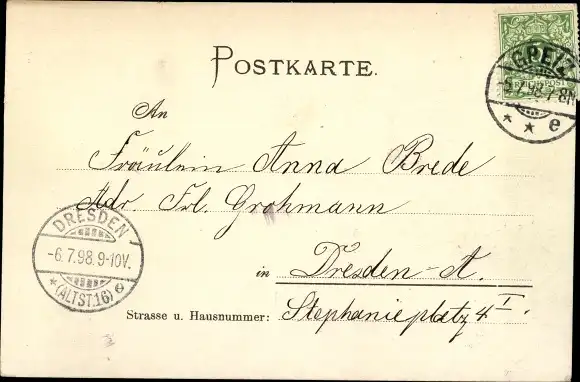 POSTKARTE.
REICHSPOST
GREIZ
-5.7.98.7-8N
* * e
An
Fräulein Anna Brede
Adr. Frl. Grohmann
DRESDEN
-6.7.98.9-10V.
* (ALTST.16) e
in Dresden-A.
Strasse u. Hausnummer: Stephanieplatz 4 I.